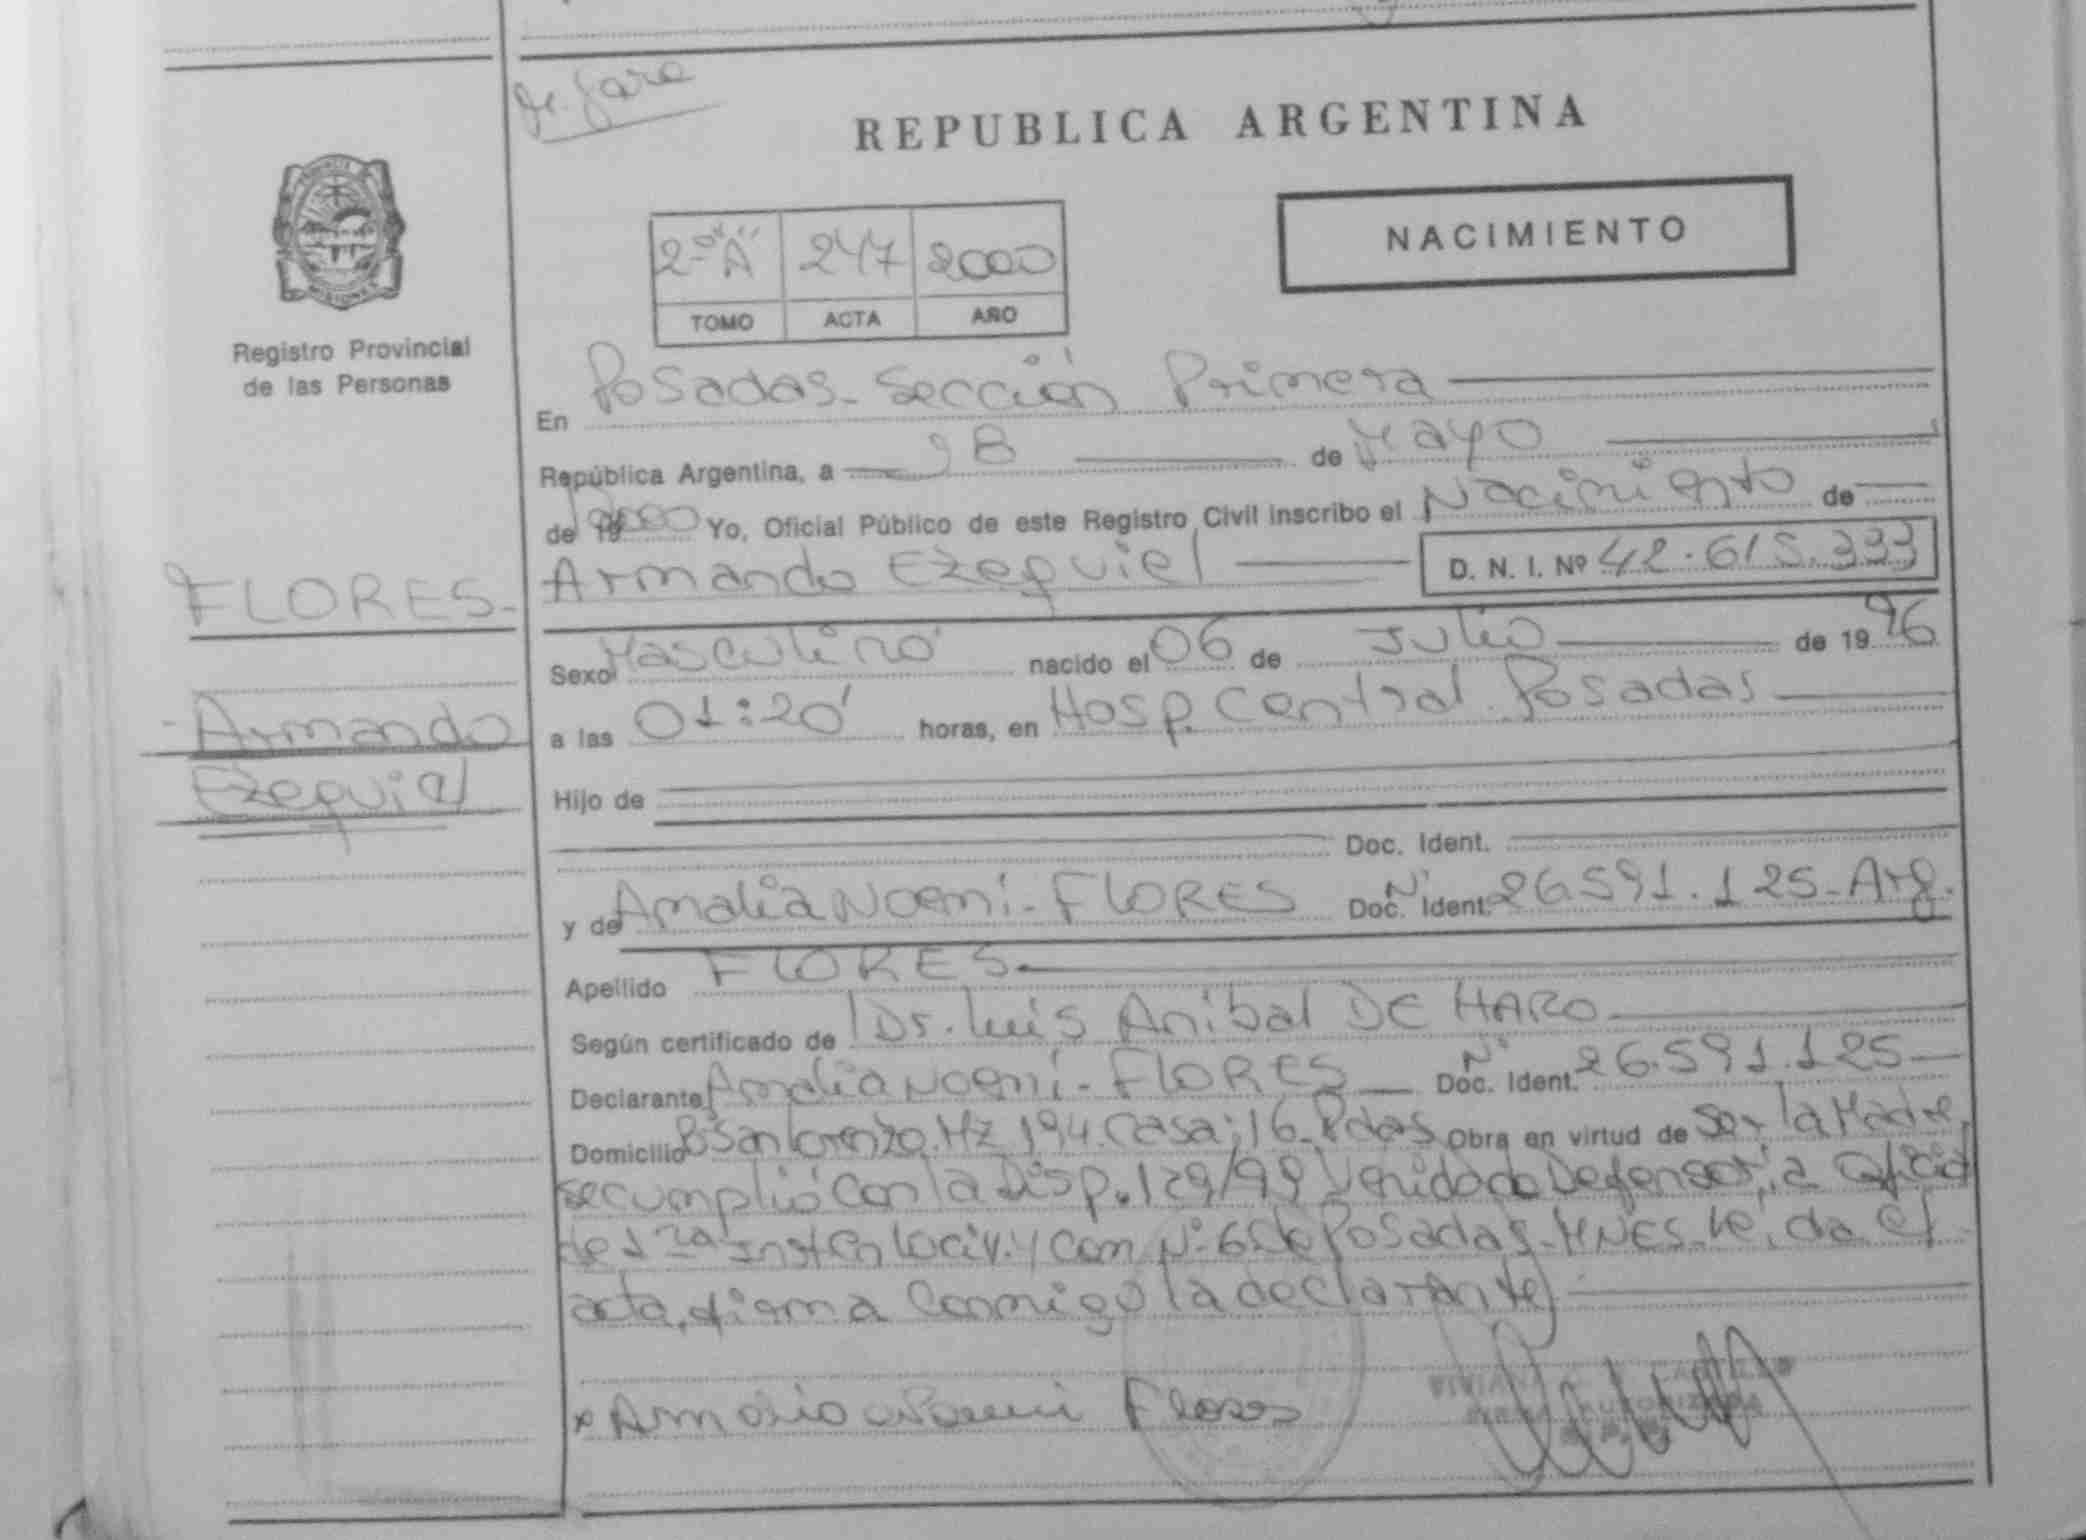 REPUBLICA ARGENTINA
NACIMIENTO
2º "A" 247 2000
TOMO ACTA AÑO
PROVINCIA
MISIONES
Registro Provincial
de las Personas
En Posadas - Sección Primera
República Argentina, a 18 de Mayo
de 19 2000 Yo, Oficial Público de este Registro Civil inscribo el Nacimiento de
FLORES-
Armando Ezequiel D. N. I. Nº 42.615.333
Sexo Masculino nacido el 06 de Julio de 19 96
Armando
Ezequiel
a las 01:20' horas, en Hosp. Central. Posadas
Hijo de
Doc. Ident.
y de Amalia Noemi - FLORES Doc. Ident. Nº 26.591.125 - Arg.
Apellido FLORES
Según certificado de Dr. Luis Anibal DE HARO
Declarante Amalia Noemi - FLORES Doc. Ident. Nº 26.591.125
Domicilio Bº San Lorenzo. Mz 194. Casa: 16. Pdas Obra en virtud de Ser la Madre,
se cumplió con la Disp. 129/99 Defensoría Oficial
de 1ra Inst. en lo Civ. y Com. Nº 6 de Posadas - MNES - Leída el
acta, firma conmigo la declarante
x Amalia Noemi Flores
VIVIANA
FIRMA AUTORIZADA